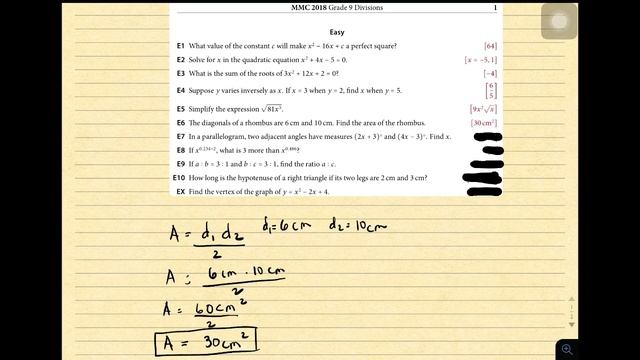 MMC 2018 Grade 9 Divisions 1
Easy
E1 What value of the constant c will make x² − 16x + c a perfect square? [64]
E2 Solve for x in the quadratic equation x² + 4x − 5 = 0. [x = −5, 1]
E3 What is the sum of the roots of 3x² + 12x + 2 = 0? [−4]
E4 Suppose y varies inversely as x. If x = 3 when y = 2, find x when y = 5. [6/5]
E5 Simplify the expression √81x⁵. [9x²√x]
E6 The diagonals of a rhombus are 6 cm and 10 cm. Find the area of the rhombus. [30 cm²]
E7 In a parallelogram, two adjacent angles have measures (2x + 3)° and (4x − 3)°. Find x.
E8 what is 3 more than
E9 If a : b = 3 : 1 and b : c = 3 : 1, find the ratio a : c.
E10 How long is the hypotenuse of a right triangle if its two legs are 2 cm and 3 cm?
EX Find the vertex of the graph of y = x² − 2x + 4.
A = d₁ d₂ / 2 d₁ = 6 cm d₂ = 10 cm
A = 6 cm · 10 cm / 2
A = 60 cm² / 2
A = 30 cm²